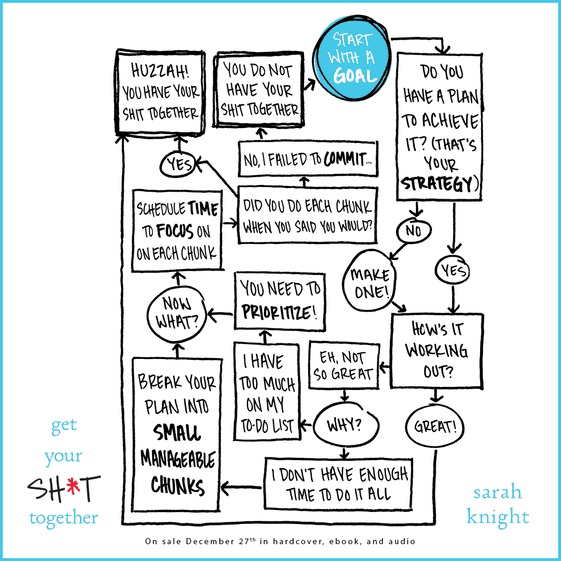 START
WITH A
GOAL
DO YOU
HAVE A PLAN
TO ACHIEVE
IT? (THAT'S
YOUR
STRATEGY)
NO
MAKE
ONE!
YES
HOW'S IT
WORKING
OUT?
GREAT!
EH, NOT
SO GREAT
WHY?
I HAVE
TOO MUCH
ON MY
TO-DO LIST
YOU NEED TO
PRIORITIZE!
I DON'T HAVE ENOUGH
TIME TO DO IT ALL
BREAK YOUR
PLAN INTO
SMALL
MANAGEABLE
CHUNKS
NOW
WHAT?
SCHEDULE TIME
TO FOCUS ON
ON EACH CHUNK
DID YOU DO EACH CHUNK
WHEN YOU SAID YOU WOULD?
NO, I FAILED TO COMMIT...
YOU DO NOT
HAVE YOUR
SHIT TOGETHER
YES
HUZZAH!
YOU HAVE YOUR
SHIT TOGETHER
get
your
SH*T
together
sarah
knight
On sale December 27th in hardcover, ebook, and audio